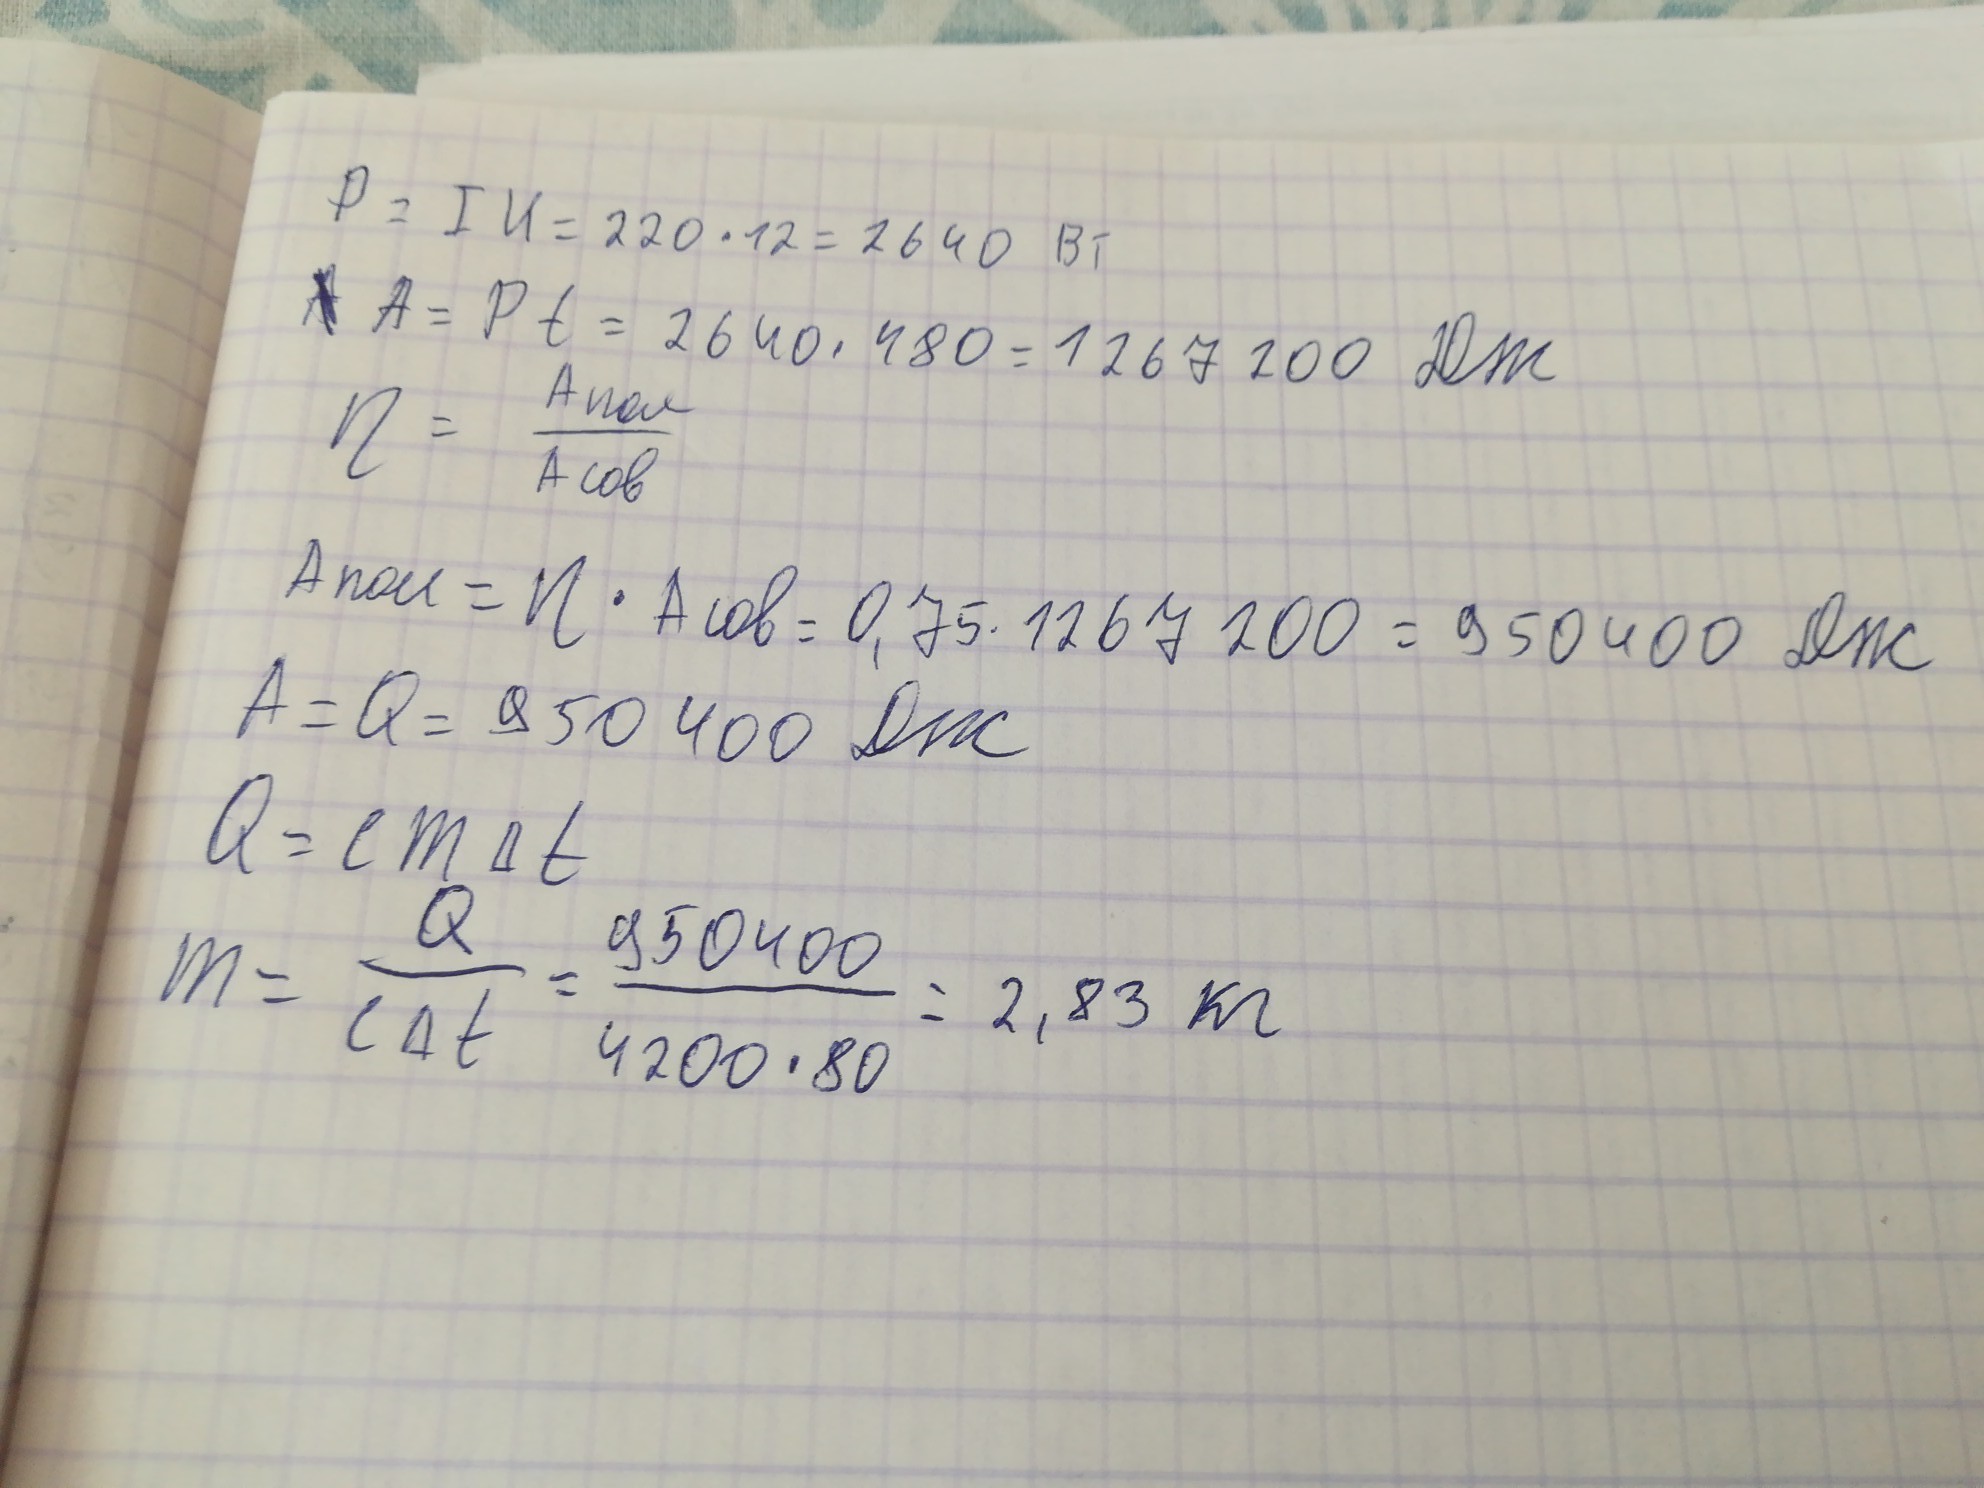 P = I U = 220 · 12 = 2640 Вт
A = P t = 2640 · 480 = 1267 200 Дж
η = Aпол / Aсов
Aпол = η · Aсов = 0,75 · 1267 200 = 950400 Дж
A = Q = 950 400 Дж
Q = c m Δt
m = Q / cΔt = 950400 / 4200 · 80 = 2,83 кг